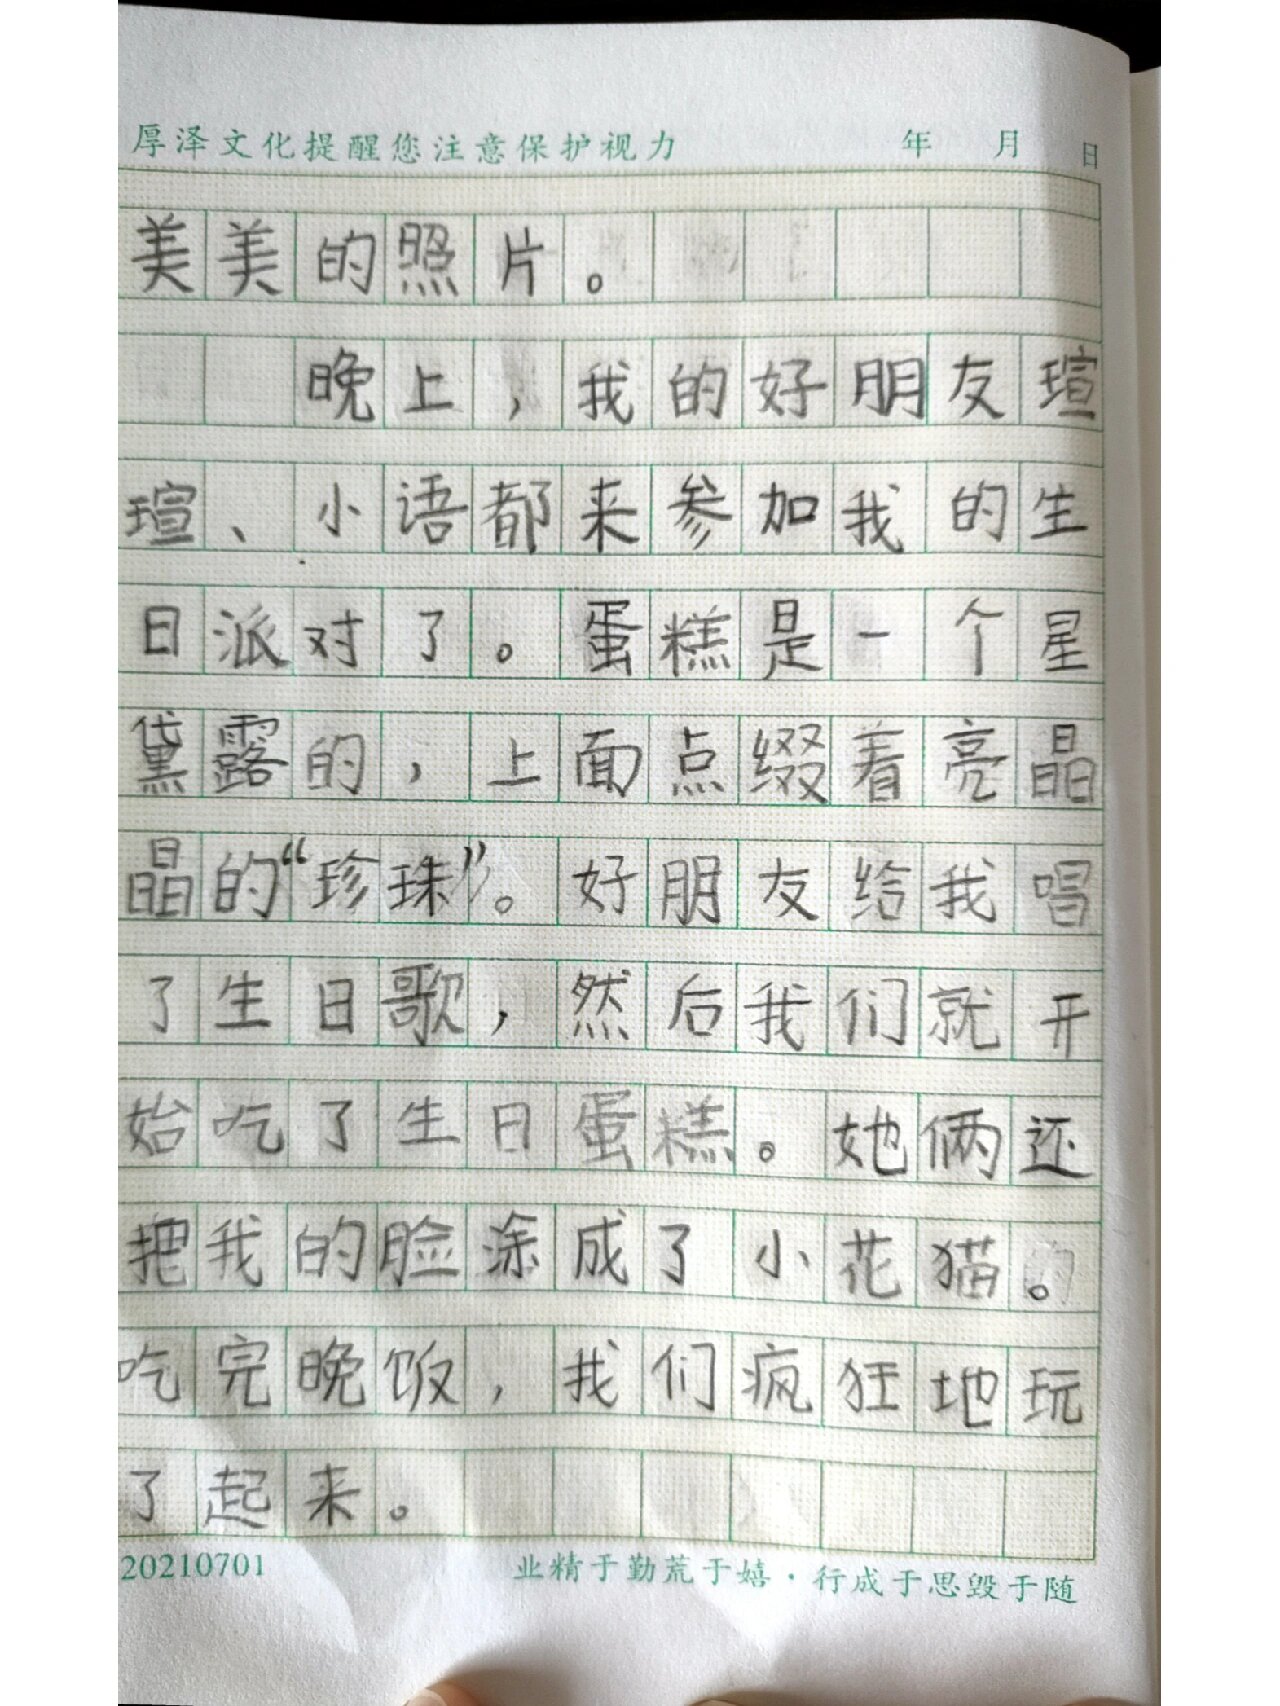 厚泽文化提醒您注意保护视力 年 月 日
美美的照片。
晚上，我的好朋友瑄
瑄、小语都来参加我的生
日派对了。蛋糕是一个星
黛露的，上面点缀着亮晶
晶的“珍珠”。好朋友给我唱
了生日歌，然后我们就开
始吃了生日蛋糕。她俩还
把我的脸涂成了小花猫。
吃完晚饭，我们疯狂地玩
了起来。
20210701 业精于勤荒于嬉·行成于思毁于随